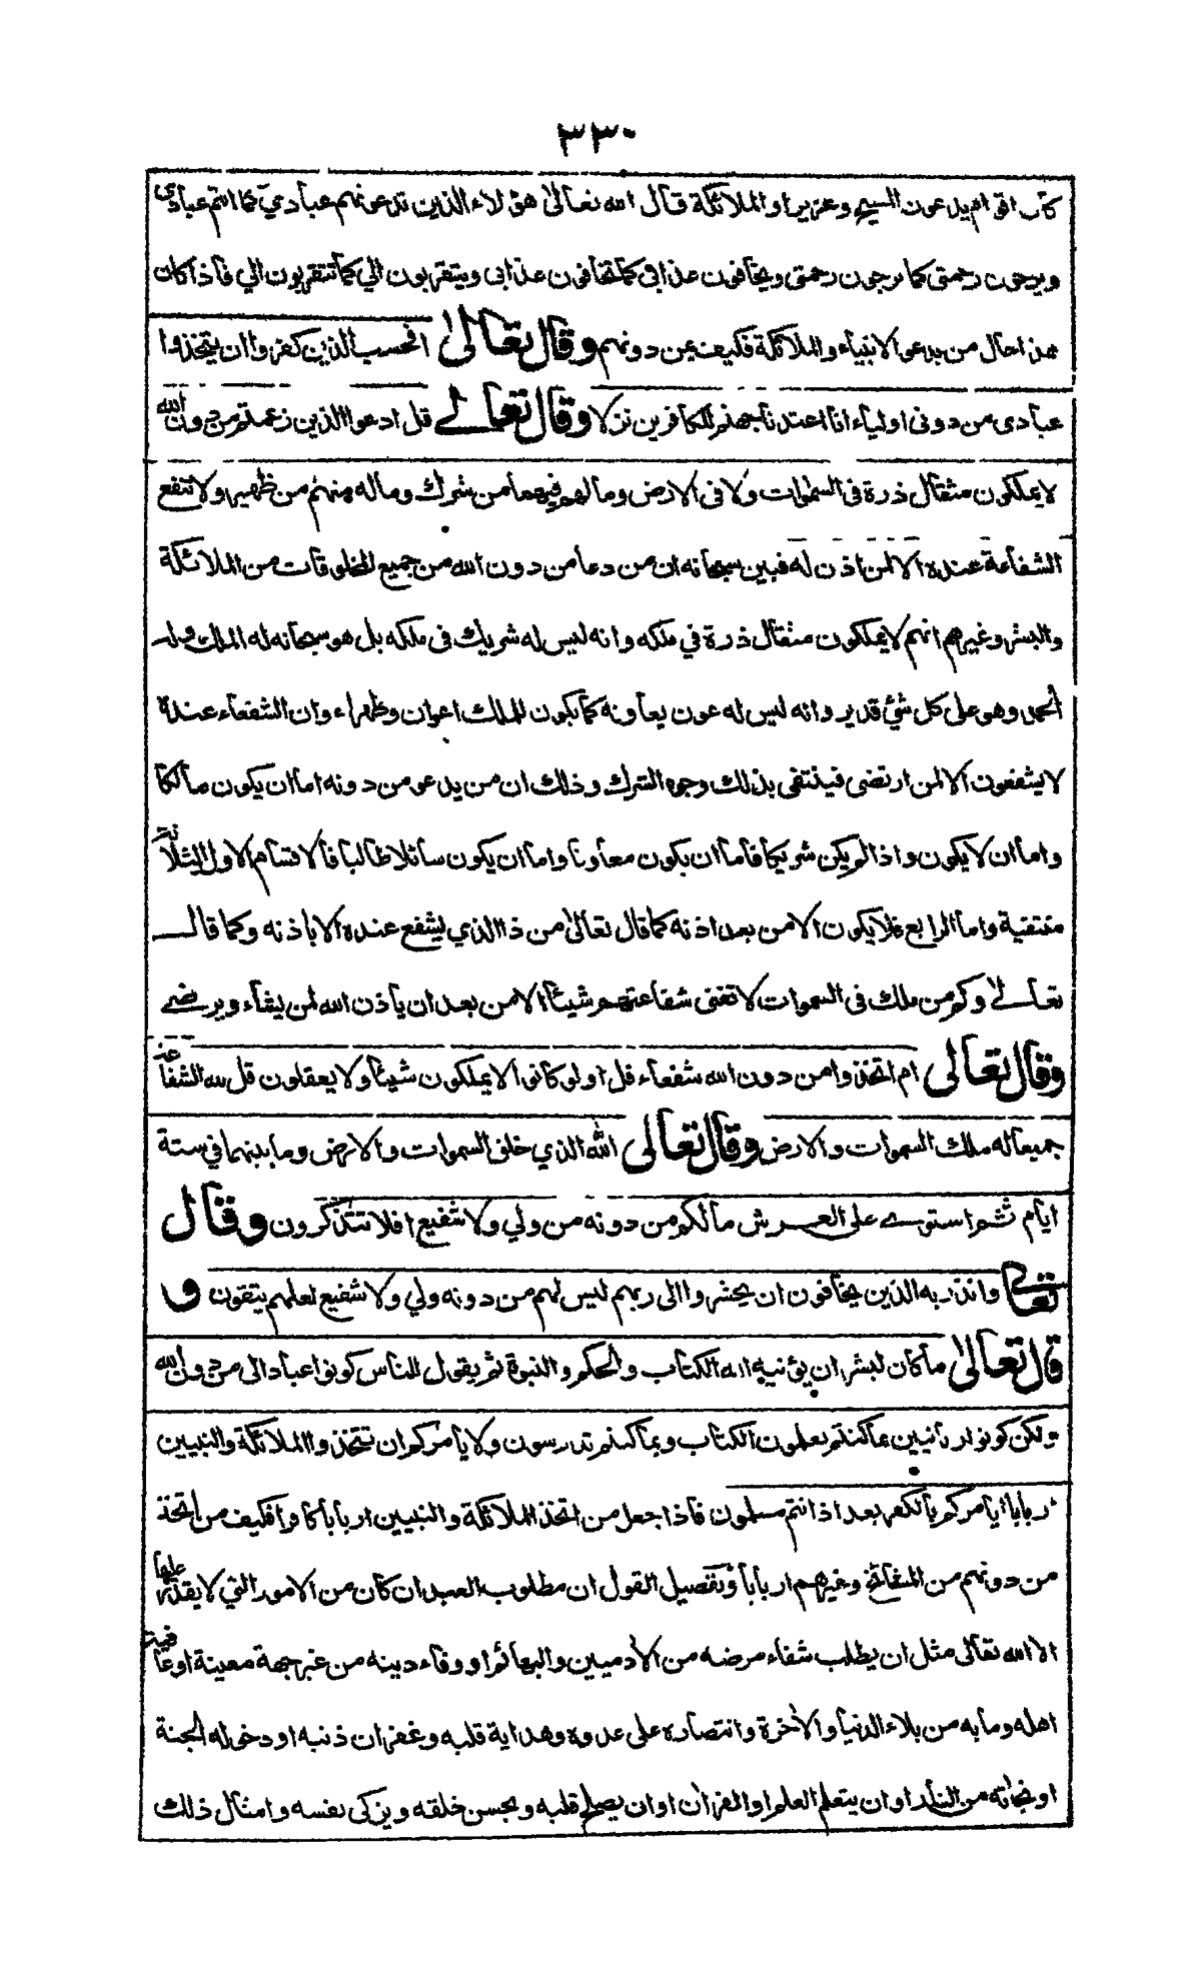 ٣٣٠
كان اقوام يدعون المسيح وعزيرا والملائكة قال الله تعالىٰ هؤلاء الذين تدعونهم عبادي كما انتم عبادي
ويرجون رحمتى كما ترجون رحمتى ويخافون عذابي كما تخافون عذابى ويتقربون الي كما تتقربون الي فاذا كان
هذا حال من يدعو الانبياء والملائكة فكيف بمن دونهم وقال تعالىٰ افحسب الذين كفروا ان يتخذوا
عبادى من دونى اولياء انا اعتدنا جهنم للكافرين نزلا وقال تعالے قل ادعوا الذين زعمتم من دون الله
لا يملكون مثقال ذرة فى السمٰوات ولا فى الارض وما لهم فيهما من شرك وما له منهم من ظهير ولا تنفع
الشفاعة عنده الا لمن اذن له فبين سبحانه ان من دعا من دون الله من جميع المخلوقات من الملائكة
والبشر وغيرهم انهم لا يملكون مثقال ذرة في ملكه وانه ليس له شريك فى ملكه بل هو سبحانه له الملك وله
الحمد وهو على كل شئ قدير وانه ليس له عون يعاونه كما يكون للملك اعوان وظهراء وان الشفعاء عنده
لا يشفعون الا لمن ارتضى فينتفى بذلك وجوه الشرك وذلك ان من يدعو من دونه اما ان يكون مالكا
واما ان لا يكون واذا لم يكن شريكا فاما ان يكون معاونا واما ان يكون سائلا طالبا فالاقسام الاول الثلاثة
منتفية واما الرابع فلا يكون الا من بعد اذنه كما قال تعالىٰ من ذا الذي يشفع عنده الا باذنه وكما قال
تعالےٰ وكم من ملك فى السموات لا تغنى شفاعتهم شيئا الا من بعد ان ياذن الله لمن يشاء ويرضے
وقال تعالى ام اتخذوا من دون الله شفعاء قل اولو كانوا لا يملكون شيئا ولا يعقلون قل لله الشفاعة
جميعا له ملك السموات والارض وقال تعالى الله الذي خلق السموات والارض وما بينهما في ستة
ايام ثم استوے على العرش ما لكم من دونه من ولي ولا شفيع افلا تتذكرون وقال
تعالے وانذر به الذين يخافون ان يحشروا الى ربهم ليس لهم من دونه ولي ولا شفيع لعلهم يتقون و
قال تعالىٰ ما كان لبشر ان يؤتيه الله الكتاب والحكم والنبوة ثم يقول للناس كونوا عبادا لى من دون الله
ولكن كونوا ربانيين بما كنتم تعلمون الكتاب وبما كنتم تدرسون ولا يامركم ان تتخذوا الملائكة والنبيين
اربابا ايامركم بالكفر بعد اذ انتم مسلمون فاذا جعل من اتخذ الملائكة والنبيين اربابا كافرا فكيف من اتخذ
من دونهم من المشائخ وغيرهم اربابا وتفصيل القول ان مطلوب العبد ان كان من الامور التي لا يقدر عليها
الا الله تعالى مثل ان يطلب شفاء مرضه من الأدميين والبهائم او وفاء دينه من غير جهة معينة او عافية
اهله وما به من بلاء الدنيا والأخرة وانتصاره على عدوه وهداية قلبه وغفران ذنبه او دخوله الجنة
او نجاته من النار او ان يتعلم العلم او القران او ان يصلح قلبه ويحسن خلقه ويزكى نفسه وامثال ذلك